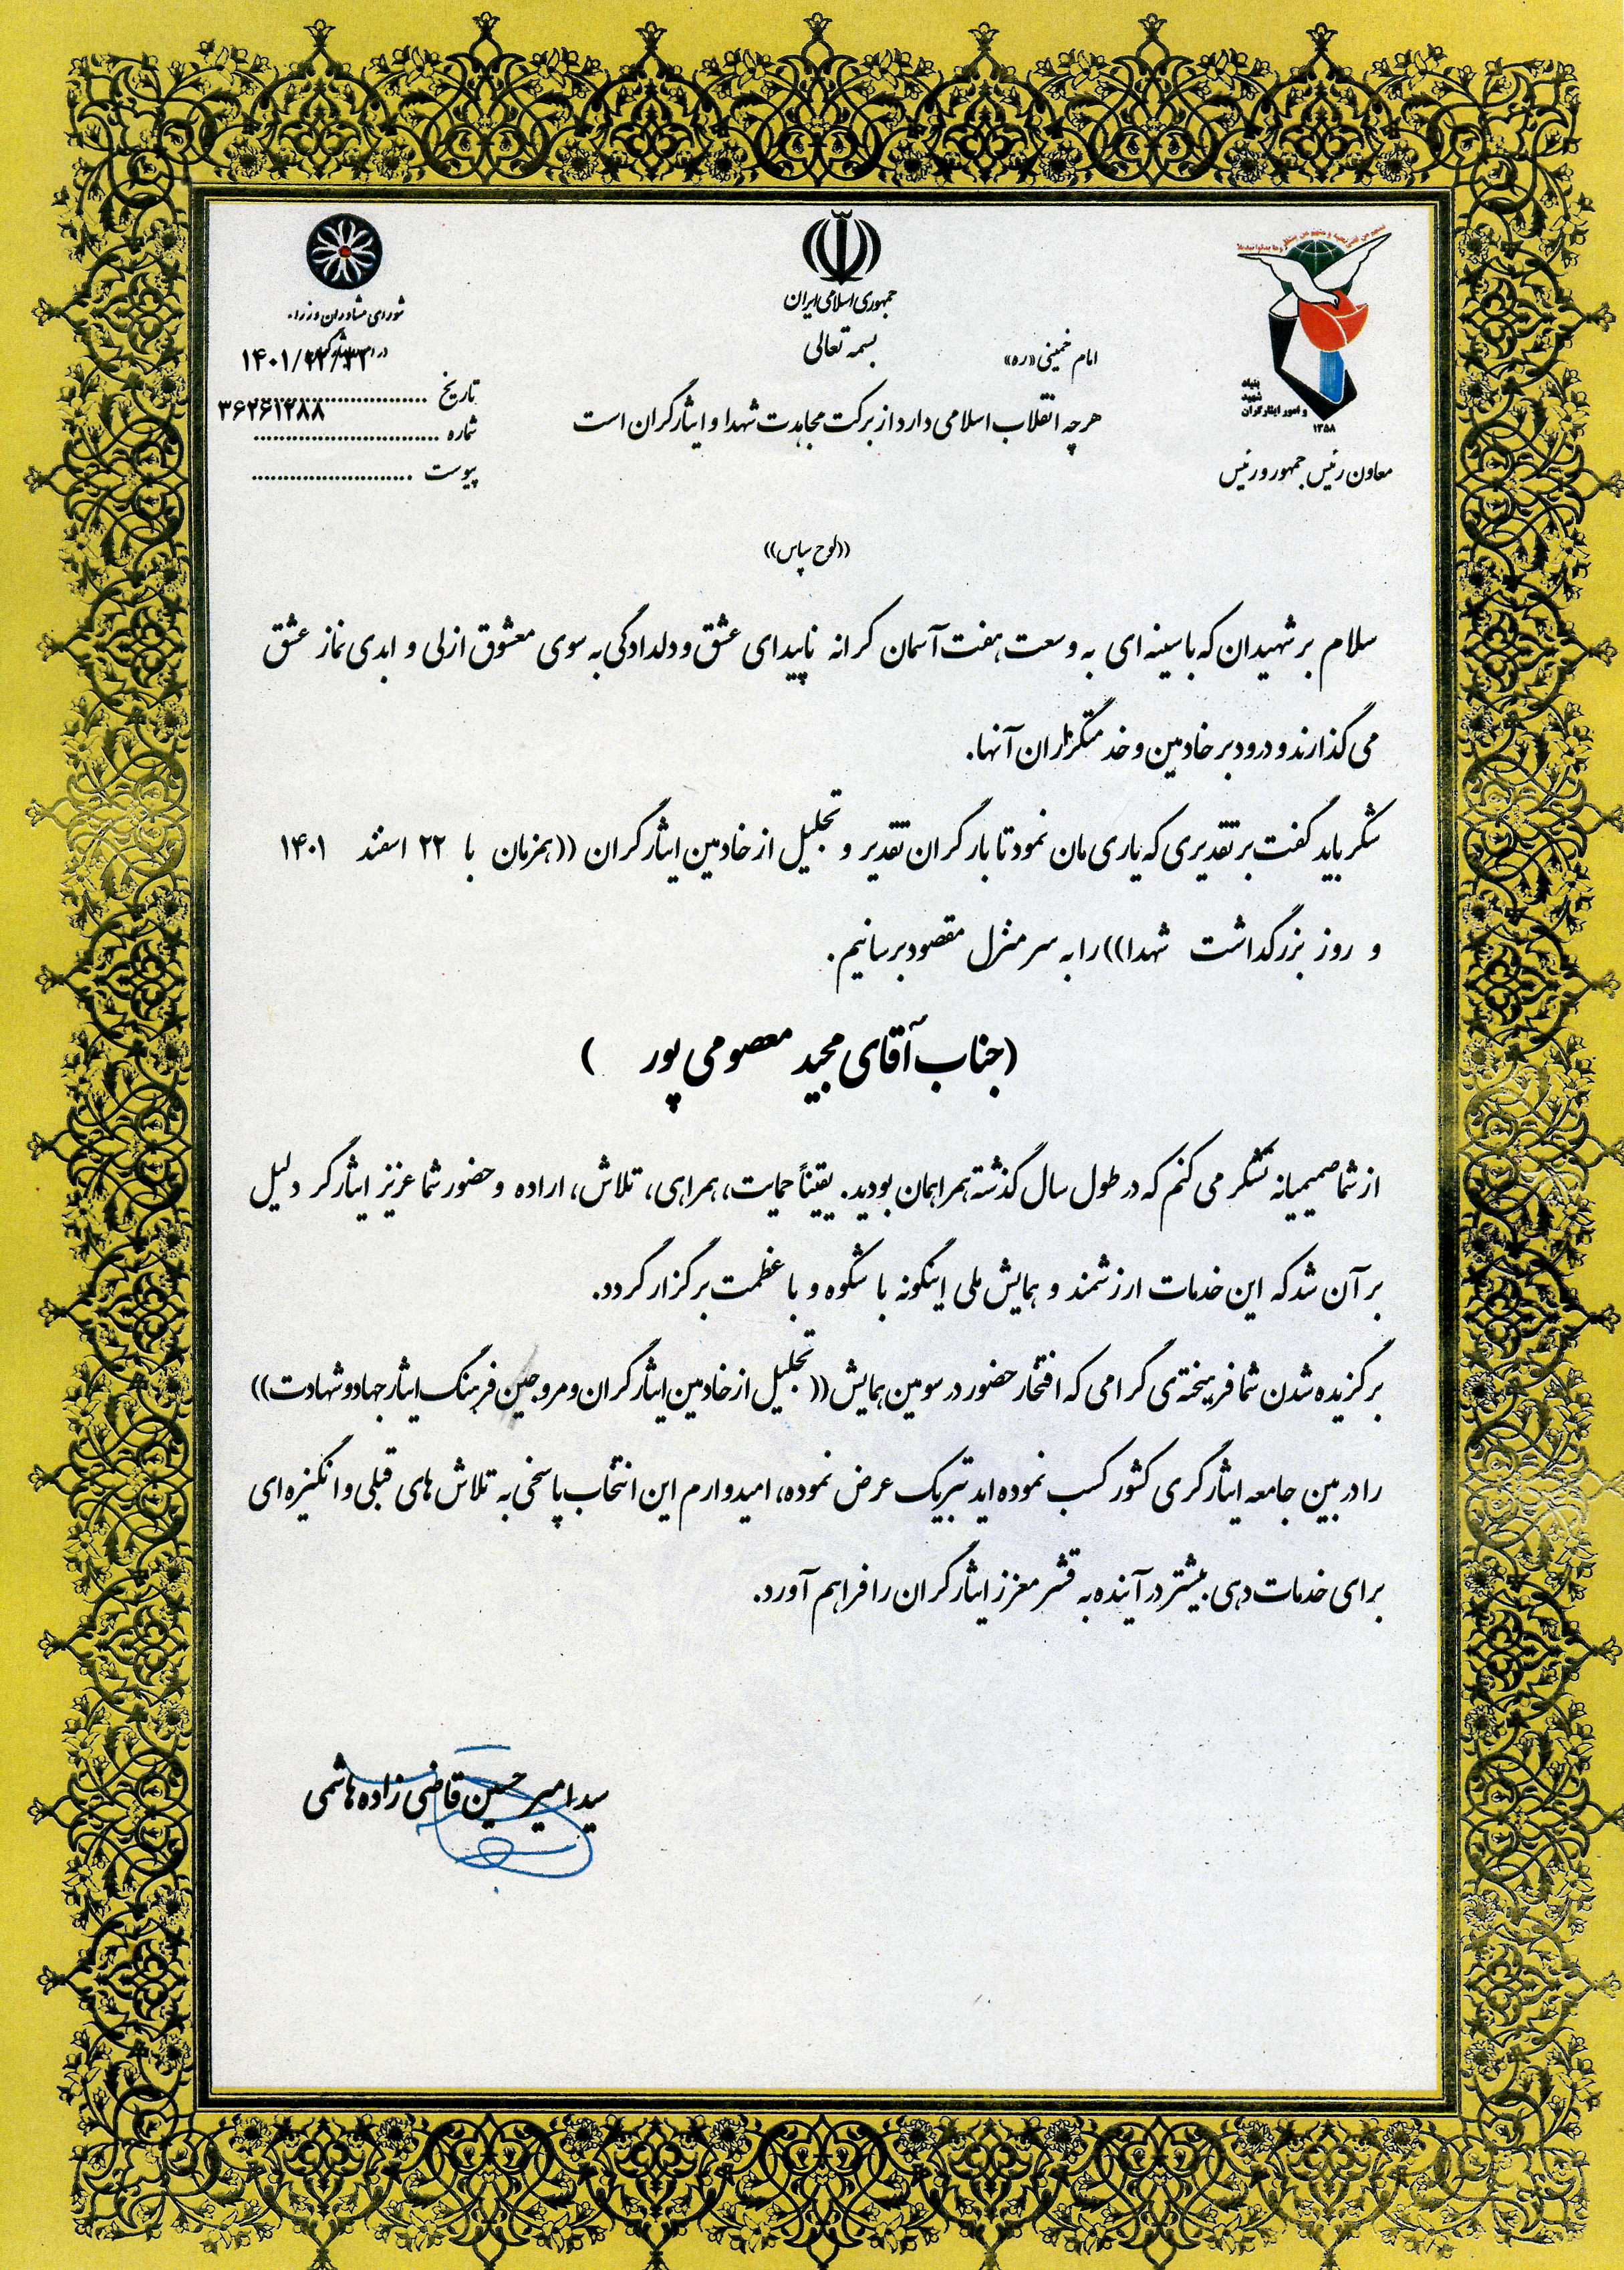 جمهوری اسلامی ایران
بسمه تعالی
امام خمینی «ره»
هرچه انقلاب اسلامی دارد از برکت مجاهدت شهدا و ایثارگران است
بنیاد
شهید
و امور ایثارگران
۱۳۵۸
معاون رئیس جمهور و رئیس
شورای مشاوران وزراء
تاریخ
۳۶۲۶۱۲۸۸
شماره
پیوست
((لوح سپاس))
سلام بر شهیدان که با سینه ای به وسعت هفت آسمان کرانه ناپیدای عشق و دلدادگی به سوی معشوق ازلی و ابدی نماز عشق
می گذارند و درود بر خادمین و خدمتگزاران آنها.
شکر باید گفت بر تقدیری که یاری مان نمود تا بار گران تقدیر و تجلیل از خادمین ایثارگران ((همزمان با ۲۲ اسفند ۱۴۰۱
و روز بزرگداشت شهدا)) را به سر منزل مقصود برسانیم.
(جناب آقای مجید معصومی پور )
از شما صمیمیانه تشکر می کنم که در طول سال گذشته همراهمان بودید. یقیناً حمایت، همراهی، تلاش، اراده و حضور شما عزیز ایثارگر دلیل
بر آن شد که این خدمات ارزشمند و همایش ملی اینگونه با شکوه و با عظمت برگزار گردد.
برگزیده شدن شما فریخته ی گرامی که افتخار حضور در سومین همایش ((تجلیل از خادمین ایثارگران و مروجین فرهنگ ایثار جهاد و شهادت))
را در بین جامعه ایثارگری کشور کسب نموده اید تبریک عرض نموده، امیدوارم این انتخاب پاسخی به تلاش های قبلی و انگیزه ای
برای خدمات دهی بیشتر در آینده به قشر معزز ایثارگران را فراهم آورد.
سید امیر حسین قاضی زاده هاشمی